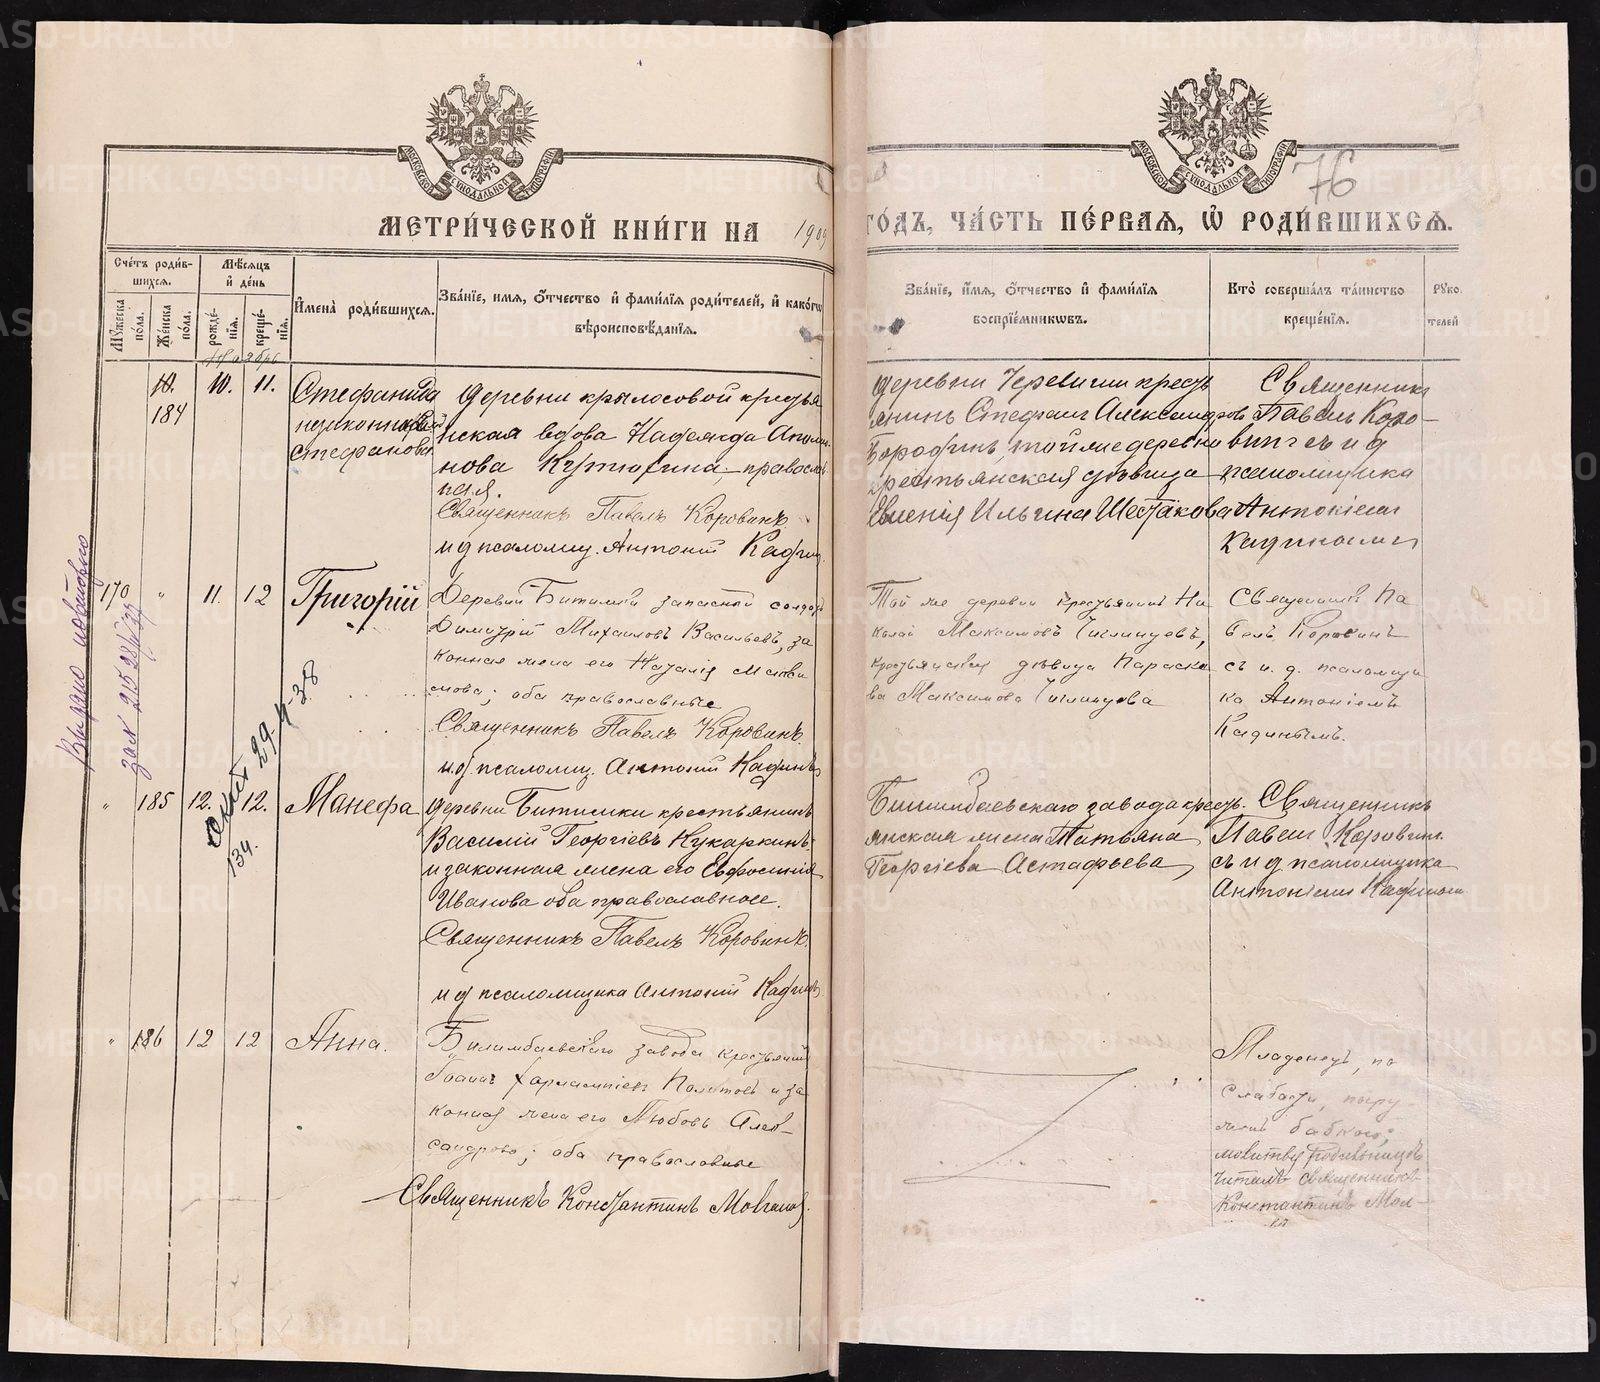 МЕТРИ́ЧЕСКОЙ КНИ́ГИ НА 1909
ГО́ДЪ, ЧА́СТЬ ПЕ́РВАЯ, Ѡ҆ РОДИ́ВШИХСЯ.
76
МОСКОВСКОЙ СѴНОДАЛЬНОЙ ТИПОГРАФІИ
МОСКОВСКОЙ СѴНОДАЛЬНОЙ ТИПОГРАФІИ
Сче́тъ роди́в-
шихся.
Мꙋ́жеска по́ла.
Же́нска по́ла.
Мѣ́сяцъ
и҆ де́нь
рожде́-
нїя.
креще́-
нїя.
И҆мена̀ роди́вшихся.
Зва́нїе, имя, ѻ҆́тчество и҆ фами́лїя роди́телей, и҆ како́гѡ
вѣроисповѣ́данїя.
Зва́нїе, и҆́мя, ѻ҆́тчество и҆ фами́лїя
воспрїе́мникѡвъ.
Кто̀ соверша́лъ та́инство
креще́нїя.
Рꙋко-
телей
Ноябрь
184 10. 11. Стефанида
Стефанова
деревни Крылосовой крестья
нская вдова Надежда
нова православ
ная.
Священникъ Павелъ Коровинъ
и д псаломщ. Антоній Кадин
деревни Черемши крестъ
янинъ Стефанъ Александров
Бородинъ, той же деревни
крестьянская дѣвица
Евгенія Ильина Шестакова
Священникъ
Павелъ Коро-
винъ съ и д
псаломщика
Антоніемъ
Кадинымъ
170 " 11. 12 Григорій
Деревни Битимки запасной солдатъ
Димитрій Михаиловъ Васильевъ, за
конная жена его Наталія
оба православные
Священникъ Павелъ Коровинъ.
и. д. псаломщ. Антоній Кадинъ
Той же деревни крестьянинъ Ни
колай Максимовъ
крестьянская дѣвица Параске
ва Максимова
Священникъ Па
велъ Коровинъ
съ и. д. псаломщи
ка Антоніемъ
Кадинымъ.
Выдано повторно
29-4-38
134.
" 185 12. 12. Манефа
деревни Битимки крестьянинъ
Василій Георгіевъ Кукаркинъ
и законная жена его Евфросинія
Иванова оба православное.
Священникъ Павелъ Коровинъ.
и д псаломщика Антоній Кадинъ
Билимбаевскаго завода крест-
янская жена Татьяна
Георгіева Астафьева,
Священникъ
Павелъ Коровинъ
съ и д псаломщика
Антоніемъ Кадинымъ
" 186 12 12 Анна.
Билимбаевскаго завода крестьянинъ
Харлампіевъ и за
конная жена его Любовь Алек-
сандрова; оба православные
Священникъ Константинъ
Младенецъ, по
слабости, погру-
женъ бабкою;
молитвы родильницѣ
читалъ священникъ
Константинъ
METRIKI.GASO-URAL.RU